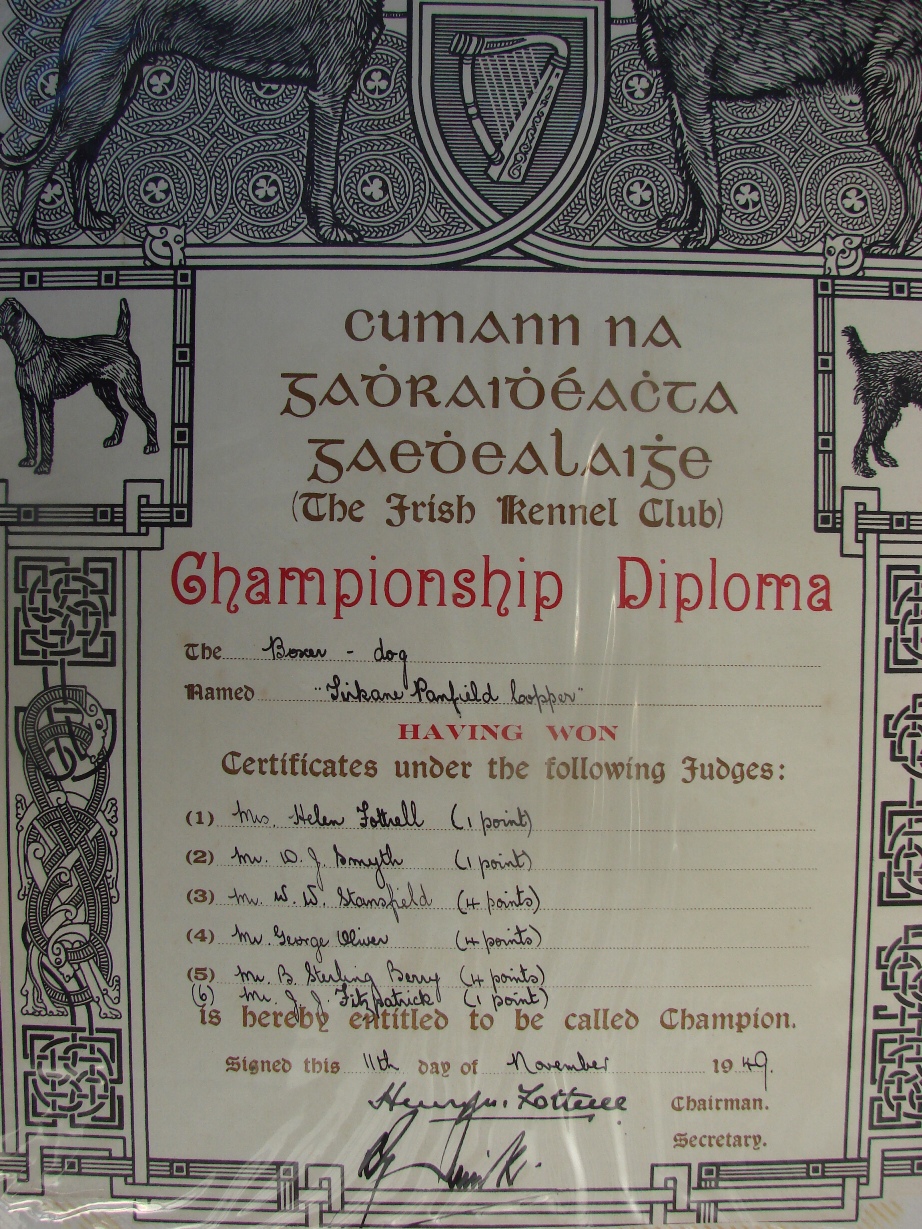 Cumann na
Gaḋraiḋéaċta
Gaeḋealaiġe
(The Irish Kennel Club)
Championship Diploma
The Boxer - dog
Named "Sirkane Panfield Copper"
HAVING WON
Certificates under the following Judges:
(1) Mrs. Helen Fottrell (1 point)
(2) Mr. D. J. Smyth (1 point)
(3) Mr. W. W. Stansfield (4 points)
(4) Mr. George Oliver (4 points)
(5) Mr. B. Sterling Berry (4 points)
(6) Mr. J. J. Fitzpatrick (1 point)
is hereby entitled to be called Champion.
Signed this 11th day of November 1949.
Chairman.
Secretary.